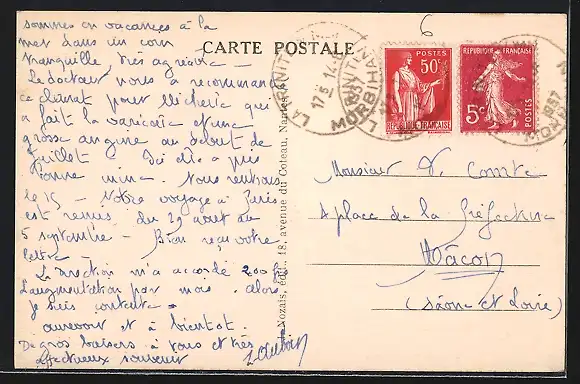 sommes en vacances à la
mer dans un coin
tranquille, très agréable —
Le docteur nous a recommandé
ce climat pour Micheline qui
a fait la varicelle et une
grosse angine au début de
Juillet. Ici elle a pris
bonne mine. Nous rentrons
le 15 — Notre voyage à Paris
est remis du 29 août au
5 septembre — Bien reçu votre
lettre —
La direction m'a accordé 200 frs
d'augmentation par mois. alors
je suis contente.
au revoir et à bientôt.
De gros baisers à vous et très
affectueux souvenir
CARTE POSTALE
6
LA TRINITÉ
MORBIHAN
1937
POSTES
50c
RÉPUBLIQUE FRANÇAISE
RÉPUBLIQUE FRANÇAISE
5c
POSTES
Nozais, édit., 18, avenue du Coteau, Nantes
Monsieur Comte
place de la Préfecture
Mâcon
(Saône et Loire)